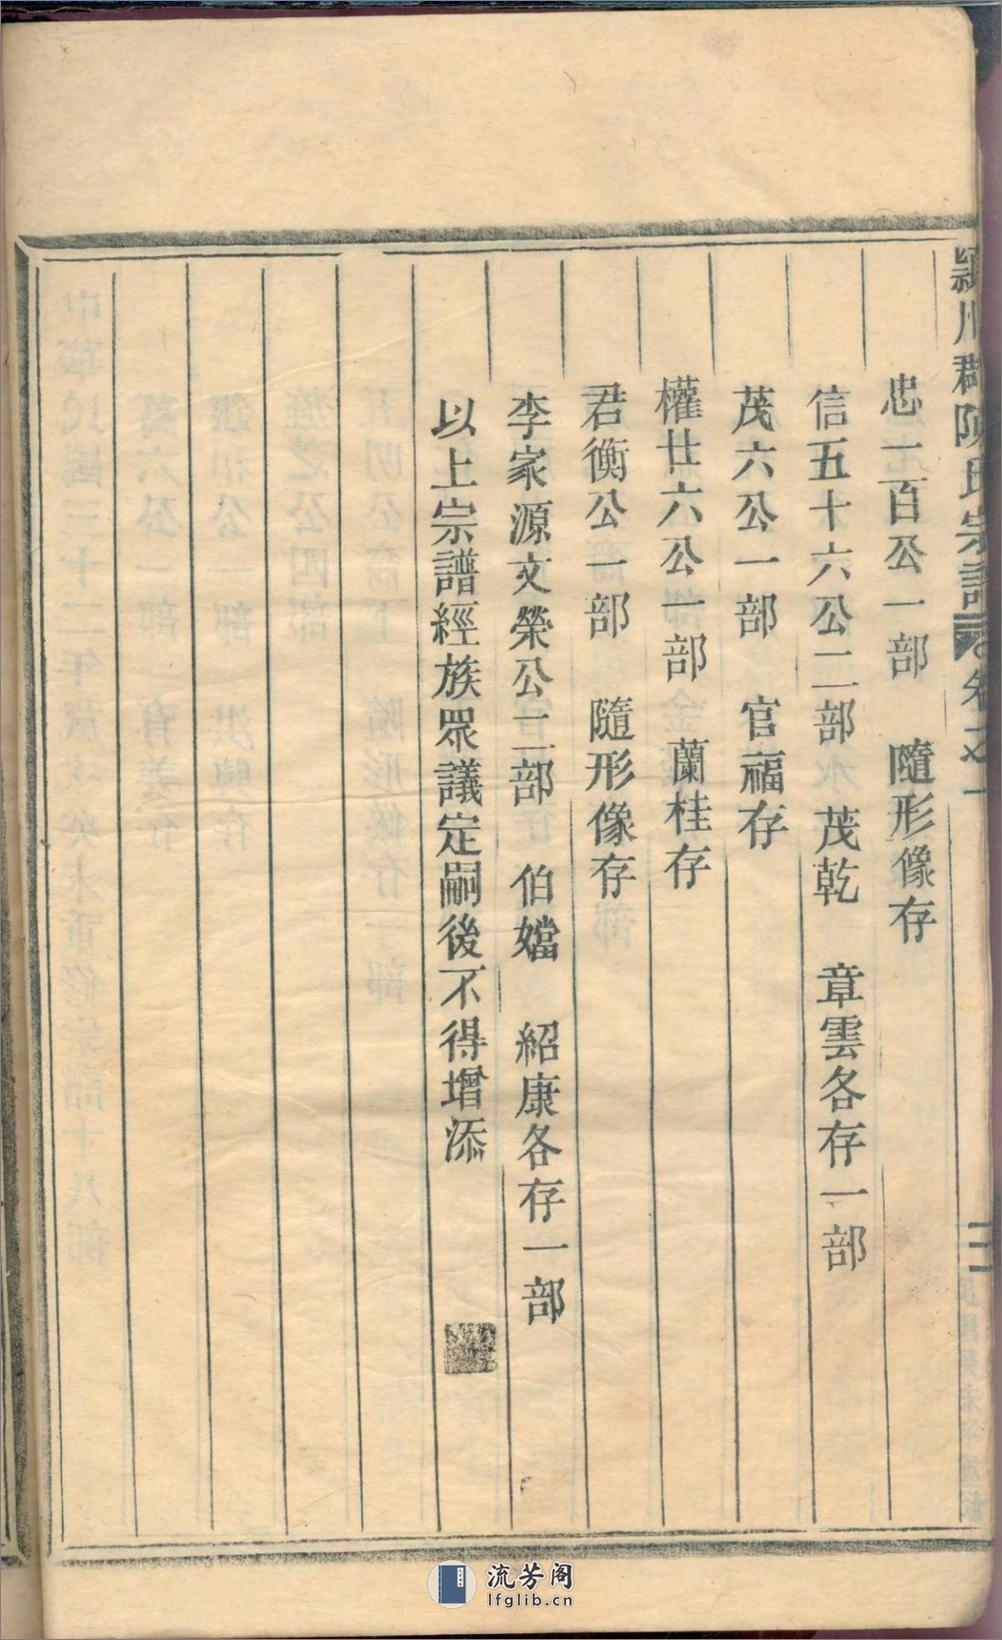 潁川郡陳氏宗譜 卷之一 二
忠一百公一部 隨形像存
信五十六公二部 茂乾 章雲各存一部
茂六公一部 官福存
權廿六公一部 蘭桂存
君衡公一部 隨形像存
李家源文榮公二部 伯嬑 紹康各存一部
以上宗譜經族眾議定嗣後不得增添
流芳阁
lfglib.cn